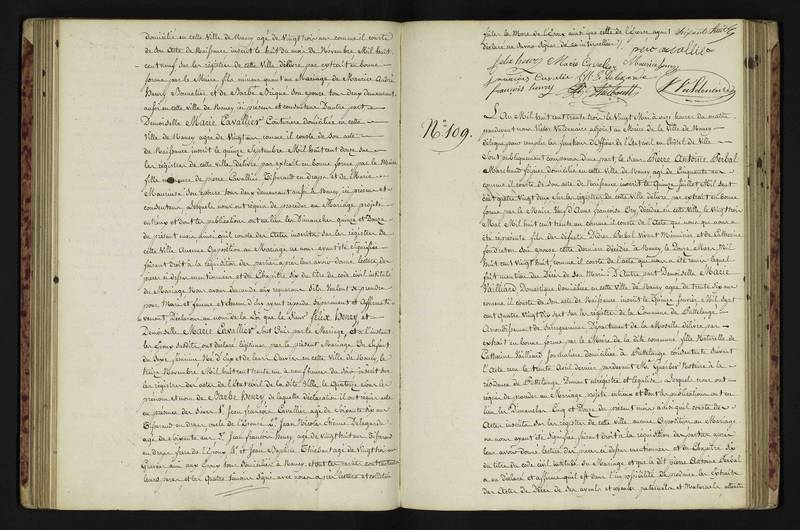 domicilié en cette Ville de Nancy agé de Vingt trois ans comme il conste
de son Acte de Naissance inscrit le huit du mois de Novembre Mil huit
cent neuf sur les registres de cette Ville délivré par extrait en bonne
forme par le Maire fils mineur quant au Mariage de Maurice André
Henry Bonnetier et de Barbe son épouse tous deux demeurant
aussi en cette Ville de Nancy ici présent et consentant D'autre part
Demoiselle Marie Cavallier Couturiere domiciliée en cette
Ville de Nancy agée de Vingt ans comme il conste de son acte
de Naissance inscrit le quinze Septembre Mil huit cent douze sur
les registres de cette ville délivré par extrait en bonne forme par le Maire
fille mineure de pierre Cavallier Tisserand en drap et de Marie
son épouse tous deux demeurant aussi à Nancy ici présens et
consentans Lesquels nous ont requis de procéder au Mariage projeté
entre eux et dont les publications ont eu lieu les Dimanches cinq et Douze
du présent mois ainsi qu'il conste des Actes inscrits sur les registres de
cette Ville Aucune Opposition au Mariage ne nous ayant été signifiée
faisant droit à la réquisition des parties après leur avoir donné lecture des
pièces ci dessus mentionnées et du Chapitre Six du titre du code civil intitulé
du Mariage Nous avons demandé aux S'ils Veulent se prendre
pour Mari et femme et chacun d'eux ayant répondu séparément et Affirmati-
vement Déclarons au nom de la Loi que le Sieur Félix Henry et
Demoiselle Marie Cavallier Sont Unis par le Mariage, et à l'instant
les Epoux ont déclaré légitimer par le présent Mariage Un Enfant
du Sexe féminin Né d'Eux et de leurs Œuvres en cette Ville de Nancy le
treize Novembre Mil huit cent trente un à onze heures du Soir inscrit sur
les registres des actes de l'état civil de la dite Ville le Quatorze sous les
prénom et nom de Barbe Henry de laquelle déclaration il ont requis acte
en présence des Sieurs Jean françois Cavallier agé de Soixante six ans
Tisserand en drap oncle de l'épouse Jean Nicolas Etienne
agé de Soixante ans Jean françois Henry agé de Vingt huit ans Tisserand
en drap frère de l'époux et Jean Baptiste Thiébaut agé de Vingt
Graveur ami des époux tous domiciliés à Nancy et ont les parties contractantes
leurs pères et les Quatre temoins Signé avec nous après lecture et collation
sauf la Mère de l'époux ainsi que celle de l'épouse ayant
déclaré ne savoir signer de ce interpellées
felix henry Marie Cavallier
françois Cavallier
françois henry Thiebault
N.° 109.
L'An Mil huit cent trente trois le Vingt Mai à onze heures du matin
pardevant nous Victor adjoint au Maire de la Ville de Nancy
délégué pour remplir les fonctions d'Officier de l'état civil en l'hôtel de Ville
Sont publiquement comparus d'une part le Sieur Pierre Antoine Berbal
Marchand fripier domicilié en cette Ville de Nancy agé de Cinquante ans
comme il conste de son acte de Naissance inscrit le Quinze Juillet Mil Sept
cent quatre vingt deux sur les registres de cette Ville délivré par extrait en bonne
forme par le Maire Veuf d'Anne françoise décédée en cette Ville le Vingt trois
Mai Mil huit cent trente un comme il conste de l'Acte que nous a
été représenté fils des défunts Didier Berbal Vivant Menuisier et de Catherine
son épouse cette dernière décédée à Nancy le Douze Mars Mil
huit cent Vingt huit, comme il conste de l'acte qui nous a été remis lequel
fait mention du Décès de son Mari D'Autre part Demoiselle Marie
Vailliard Domestique domiciliée en cette Ville de Nancy agée de trente six ans
comme il conste de son acte de Naissance inscrit le Quinze février Mil Sept
cent Quatre Vingt Dix Sept sur les registres de la Commune de Puttelange
Arrondissement de Sarreguemines Département de la Moselle délivré par
extrait en bonne forme par le Maire de la dite commune fille Naturelle de
Catherine Vailliard Journaliere domiciliée à Puttelange consentante suivant
l'Acte reçu le trente Avril dernier pardevant Me Notaire à la
résidence de Puttelange Dument enregistré et légalisé Lesquels nous ont
requis de procéder au Mariage projeté entre eux et dont les publications ont eu
lieu les Dimanches Cinq et Douze du présent mois ainsi qu'il conste des
Actes inscrits sur les registres de cette Ville aucune Opposition au Mariage
ne nous ayant été signifiée faisant droit à la réquisition des parties après
leur avoir donné lecture des pièces ci dessus mentionnées et du Chapitre Six
du titre du code civil intitulé du Mariage et que le dit pierre Antoine Berbal
a déclaré et affirmé qu'il est dans l'impossibilité de produire les Extraits
des Actes de Décès de ses aïeuls et aïeules paternels et Maternels attendu